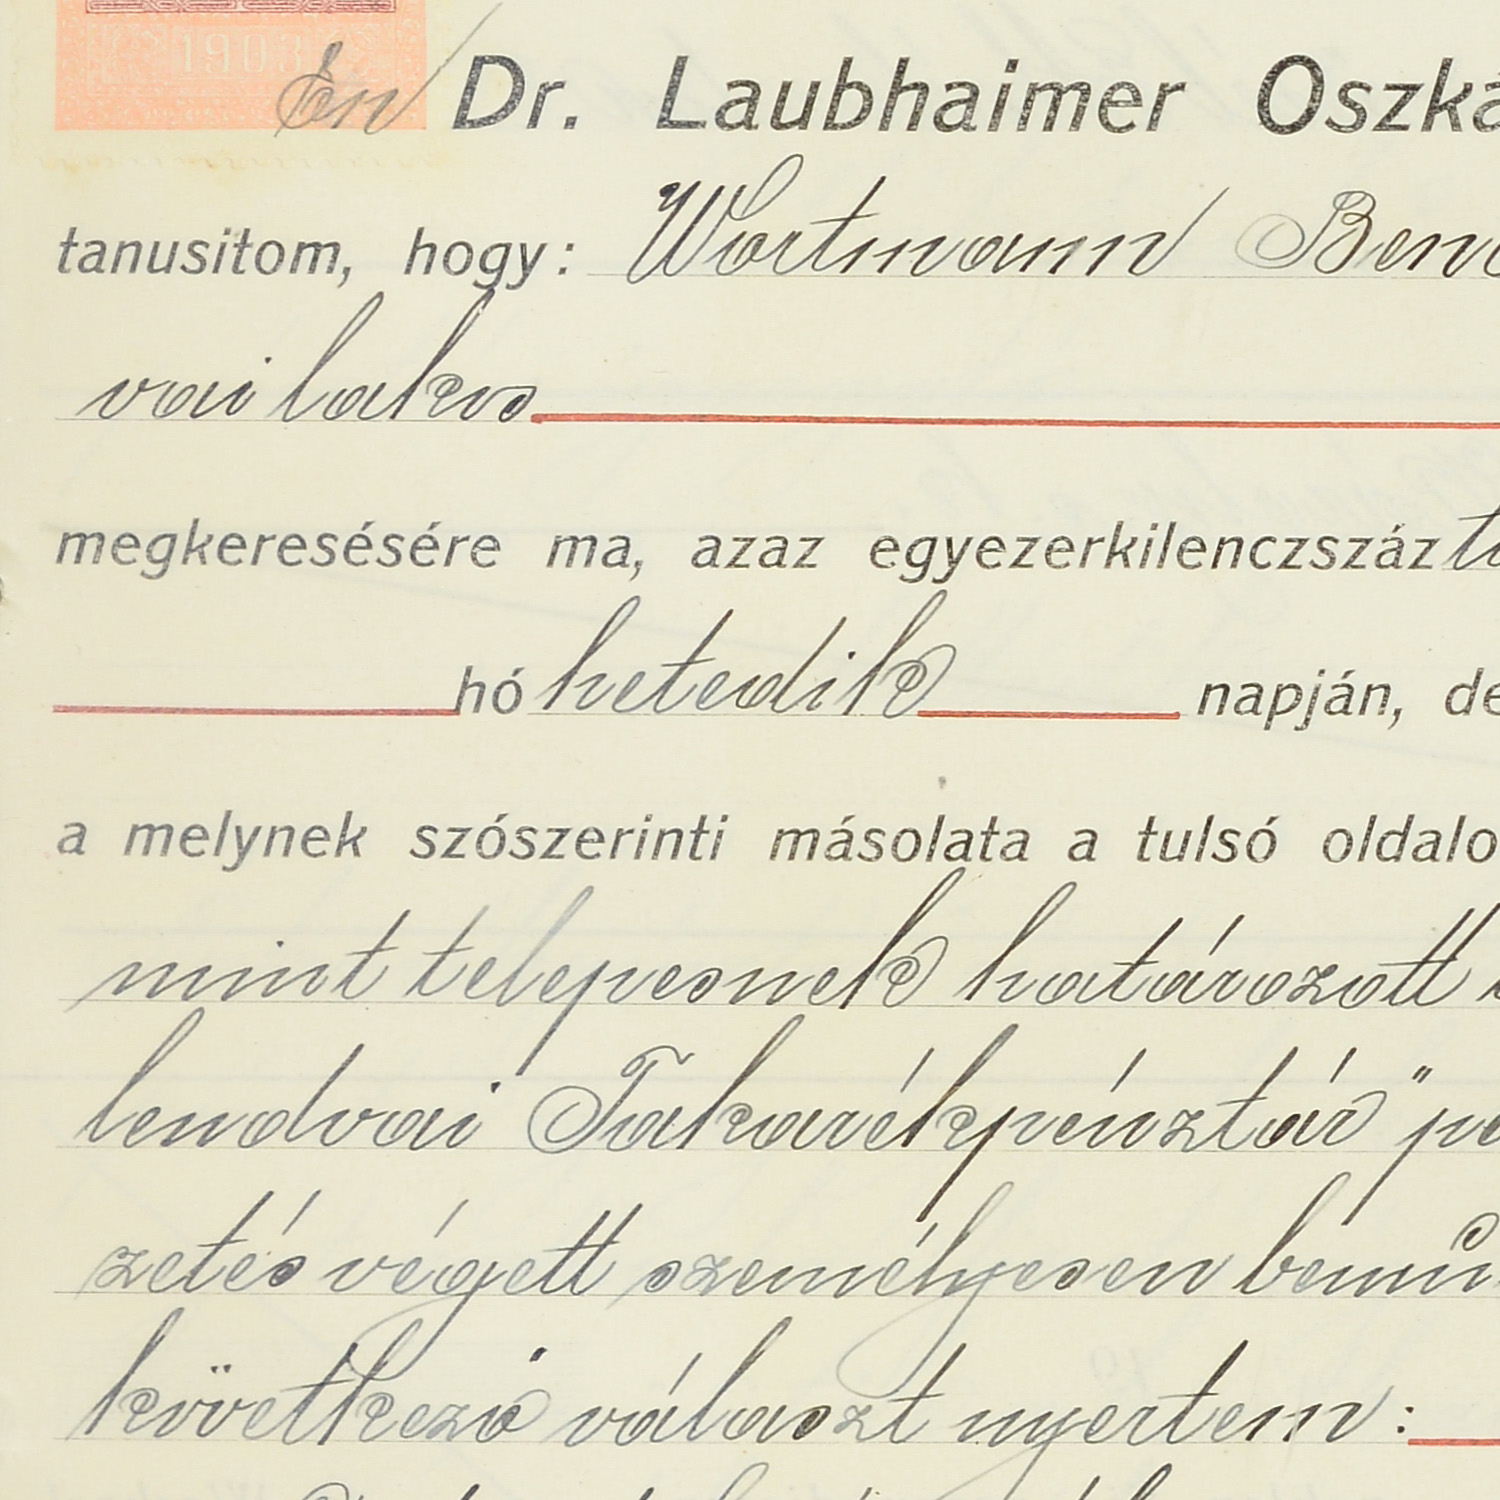 1903
Én Dr. Laubhaimer
tanusitom, hogy: Wortmann
vai lakos
megkeresésére ma, azaz egyezerkilenczszáz
hó hetedik napján, de
a melynek szószerinti másolata a tulsó oldalo
mint telepesnek határozott
lendvai Takarékpénztár"
zetés végett személyesen bemu
következő választ nyertem: